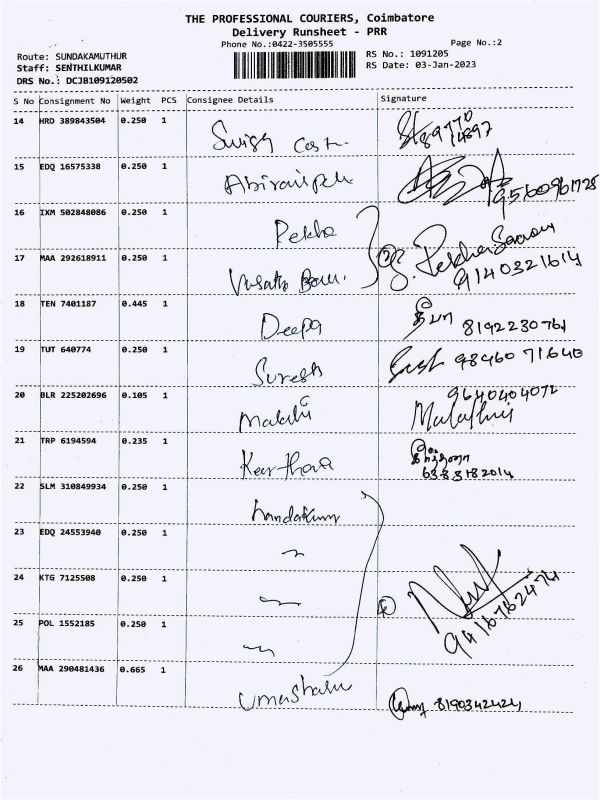 THE PROFESSIONAL COURIERS, Coimbatore
Delivery Runsheet - PRR
Phone No.:0422-3505555
Page No.:2
Route: SUNDAKAMUTHUR
RS No.: 1091205
Staff: SENTHILKUMAR
RS Date: 03-Jan-2023
DRS No.: DCJB109120502
S No Consignment No Weight PCS Consignee Details Signature
14 HRD 389843504 0.250 1
15 EDQ 16575338 0.250 1 9560961728
16 IXM 502848086 0.250 1 Rekha
17 MAA 292618911 0.250 1 9140321614
18 TEN 7401187 0.445 1 Deepa தீபா 8192230761
19 TUT 640774 0.250 1 Suresh 98460 71640
20 BLR 225202696 0.105 1 Malathi 9640404072 Malathi
21 TRP 6194594 0.235 1 Keerthana 6383182014
22 SLM 310849934 0.250 1
23 EDQ 24553940 0.250 1
24 KTG 7125508 0.250 1
25 POL 1552185 0.250 1 9416762474
26 MAA 290481436 0.665 1 8190342424